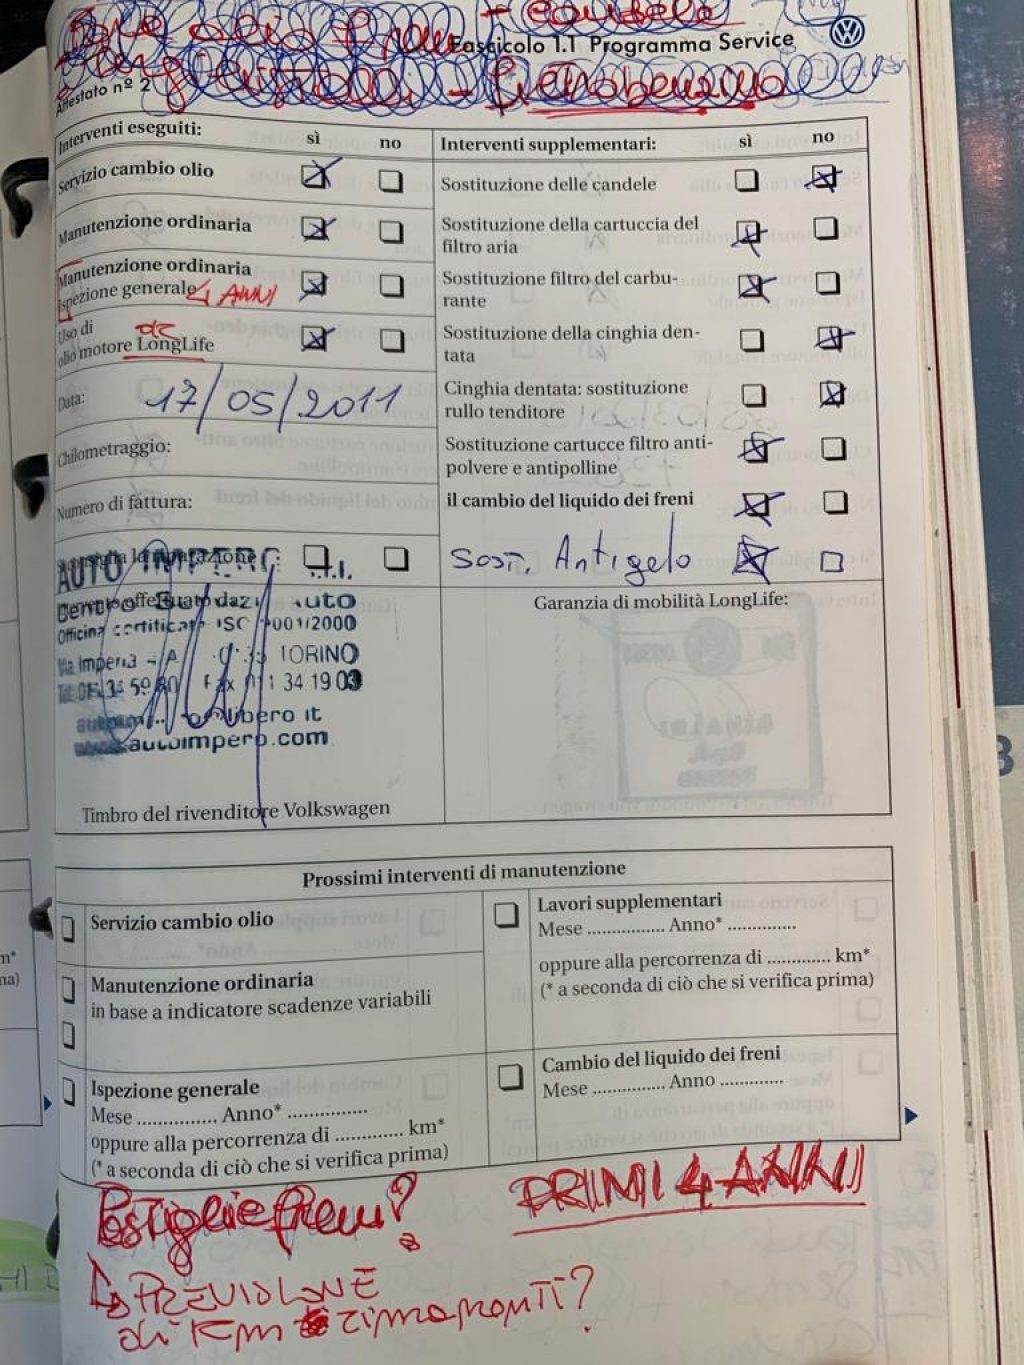 Fascicolo 1.1 Programma Service
Attestato nº 2
Interventi eseguiti: sì no
Servizio cambio olio
Manutenzione ordinaria
Manutenzione ordinaria
Ispezione generale 4 ANNI
Uso di
olio motore LongLife
Data: 17/05/2011
Chilometraggio:
Numero di fattura:
AUTO IMPERO
Officina certificata ISO 9001/2000
TORINO
autoimpero.com
Timbro del rivenditore Volkswagen
Interventi supplementari: sì no
Sostituzione delle candele
Sostituzione della cartuccia del
filtro aria
Sostituzione filtro del carbu-
rante
Sostituzione della cinghia den-
tata
Cinghia dentata: sostituzione
rullo tenditore
Sostituzione cartucce filtro anti-
polvere e antipolline
il cambio del liquido dei freni
Sost. Antigelo
Garanzia di mobilità LongLife:
Prossimi interventi di manutenzione
Servizio cambio olio
Manutenzione ordinaria
in base a indicatore scadenze variabili
Ispezione generale
Mese ............... Anno* ...............
oppure alla percorrenza di ............ km*
(* a seconda di ciò che si verifica prima)
Lavori supplementari
Mese ............... Anno* .............
oppure alla percorrenza di ............ km*
(* a seconda di ciò che si verifica prima)
Cambio del liquido dei freni
Mese .............. Anno ............
Pastiglie freni?
PRIMI 4 ANNI
PREVISIONE
di Km rimanenti?